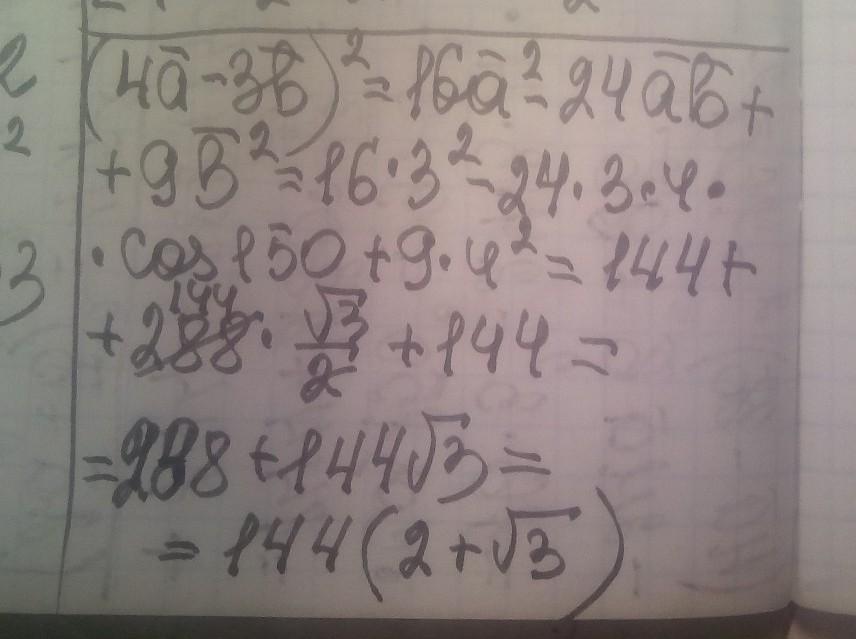 (4a̅-3b̅)²=16a̅²-24a̅b̅+
+9b̅²=16·3²-24·3·4·
·cos150+9·4²=144+
144
+288·√3/2+144=
=288+144√3=
=144(2+√3)
2
2
3